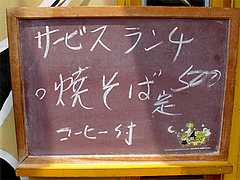 サービスランチ
焼そば定 500
コーヒー付